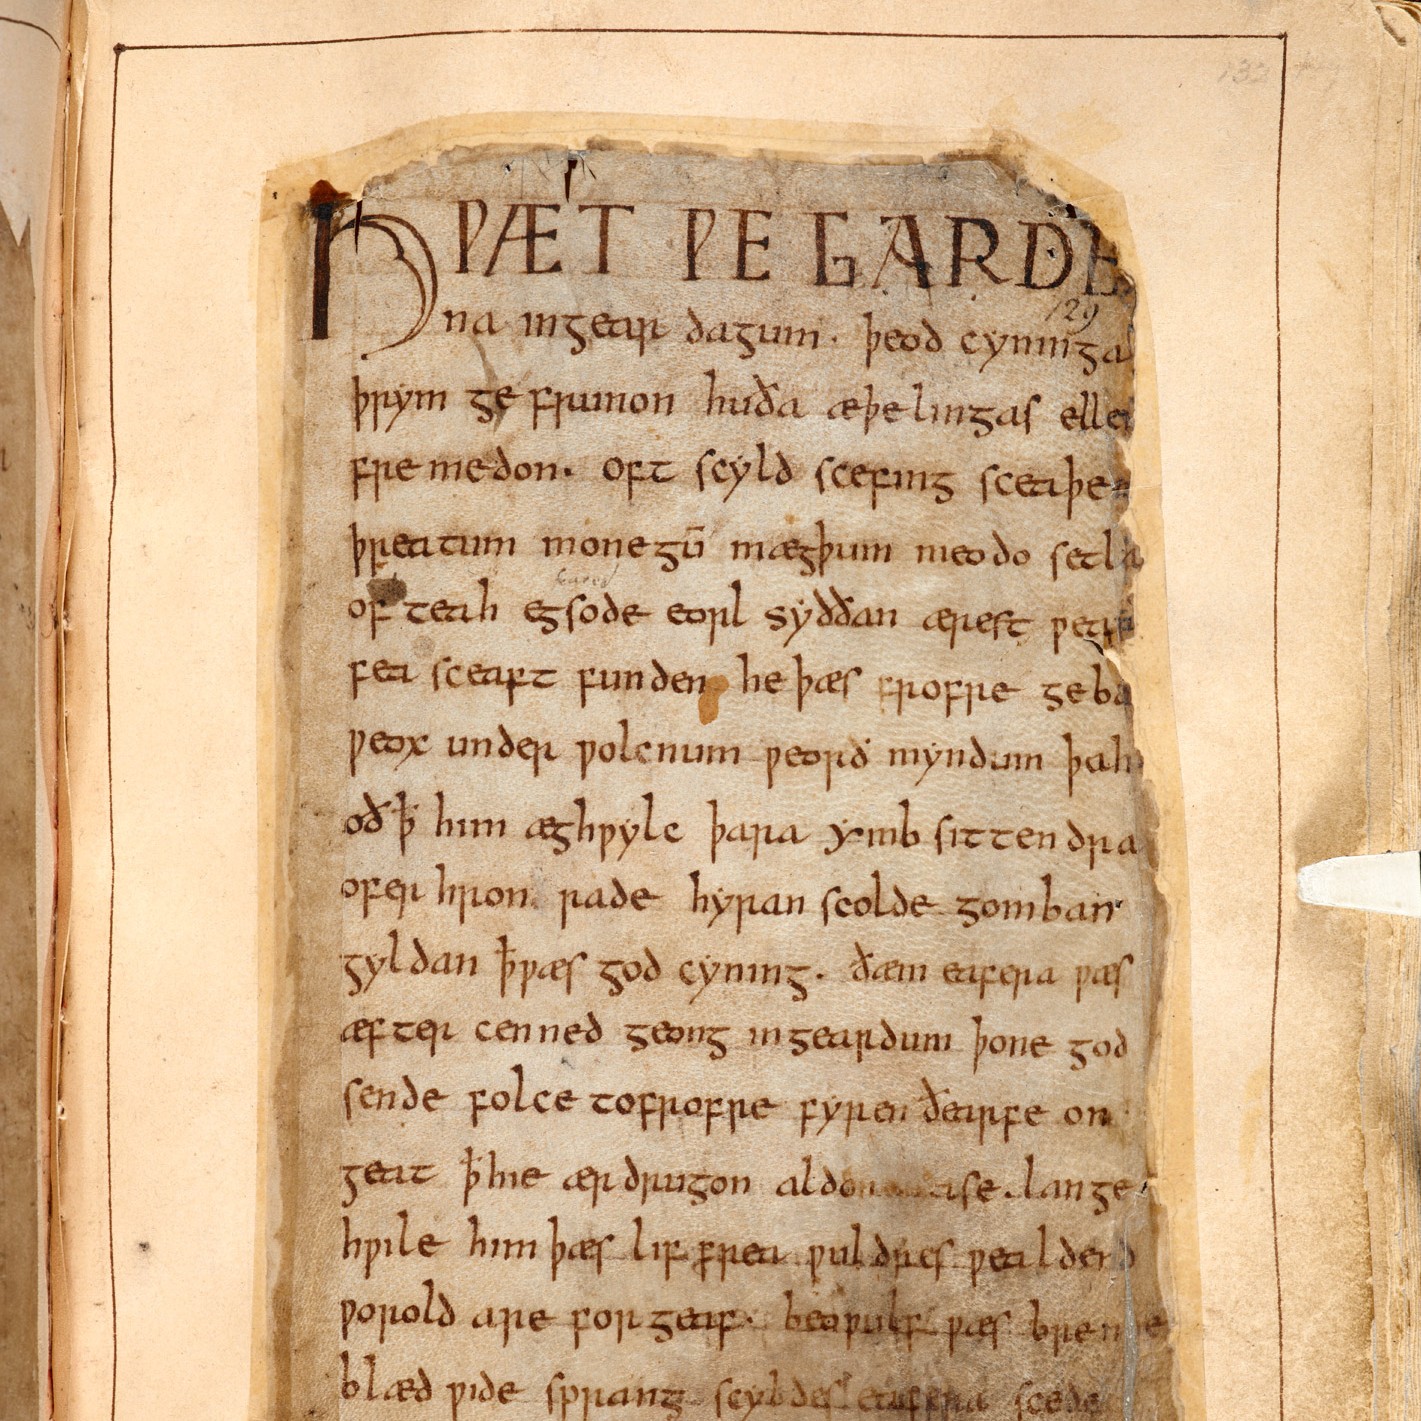 HǷÆT ǷE GARDE
na ingear dagum. þeod cyninga
þrym ge frunon huða æþelingas elle
fre medon. oft scyld scefing sceaþe
þreatum monegū mægþum meodo setla
of teah egsode eorl syððan ærest ƿear
fea sceaft funden he þæs frofre geba
ƿeox under ƿolcnum ƿeorð myndum þah
oð ꝥ him æghƿylc þara ymb sittendra
ofer hron rade hyran scolde gomban
gyldan ꝥ ƿæs god cyning. ðæm eafera ƿæs
æfter cenned geong ingeardum þone god
sende folce tofrofre fyren ðearfe on
geat ꝥ hie ær drugon aldor ase. lange
hƿile him þæs lif frea ƿuldres ƿealdend
ƿorold are for geaf. beaƿulf ƿæs breme
blæd ƿide sprang scyldes eafera scede
129
132